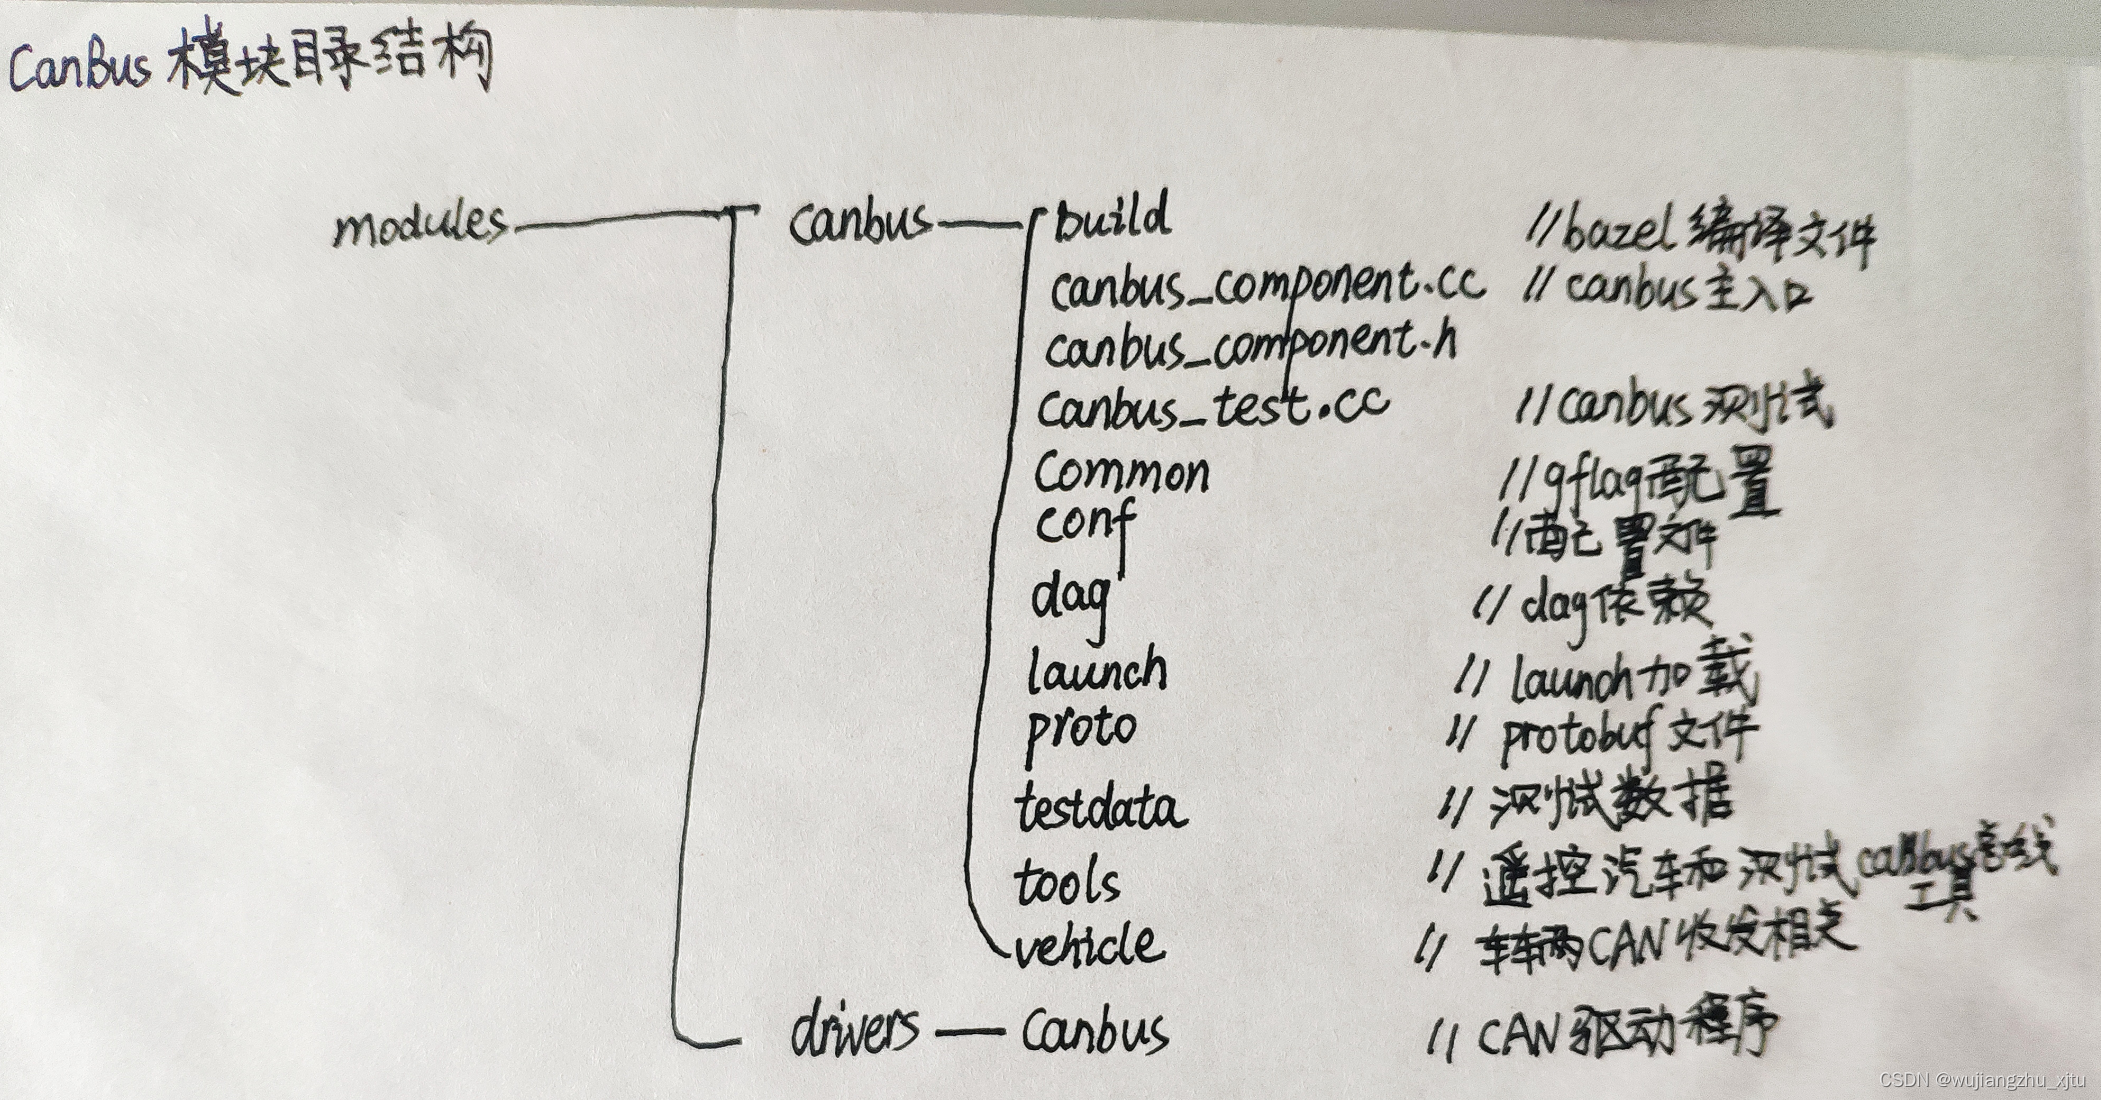 CanBus 模块目录结构
modules canbus build //bazel 编译文件
canbus_component.cc // canbus主入口
canbus_component.h
canbus_test.cc //canbus 测试
common //gflag配置
conf //配置文件
dag // dag依赖
launch // launch加载
proto // protobuf 文件
testdata // 测试数据
tools // 遥控汽车和测试canbus总线
工具
vehicle // 车辆CAN收发相关
drivers canbus // CAN 驱动程序
CSDN @wujiangzhu_xjtu